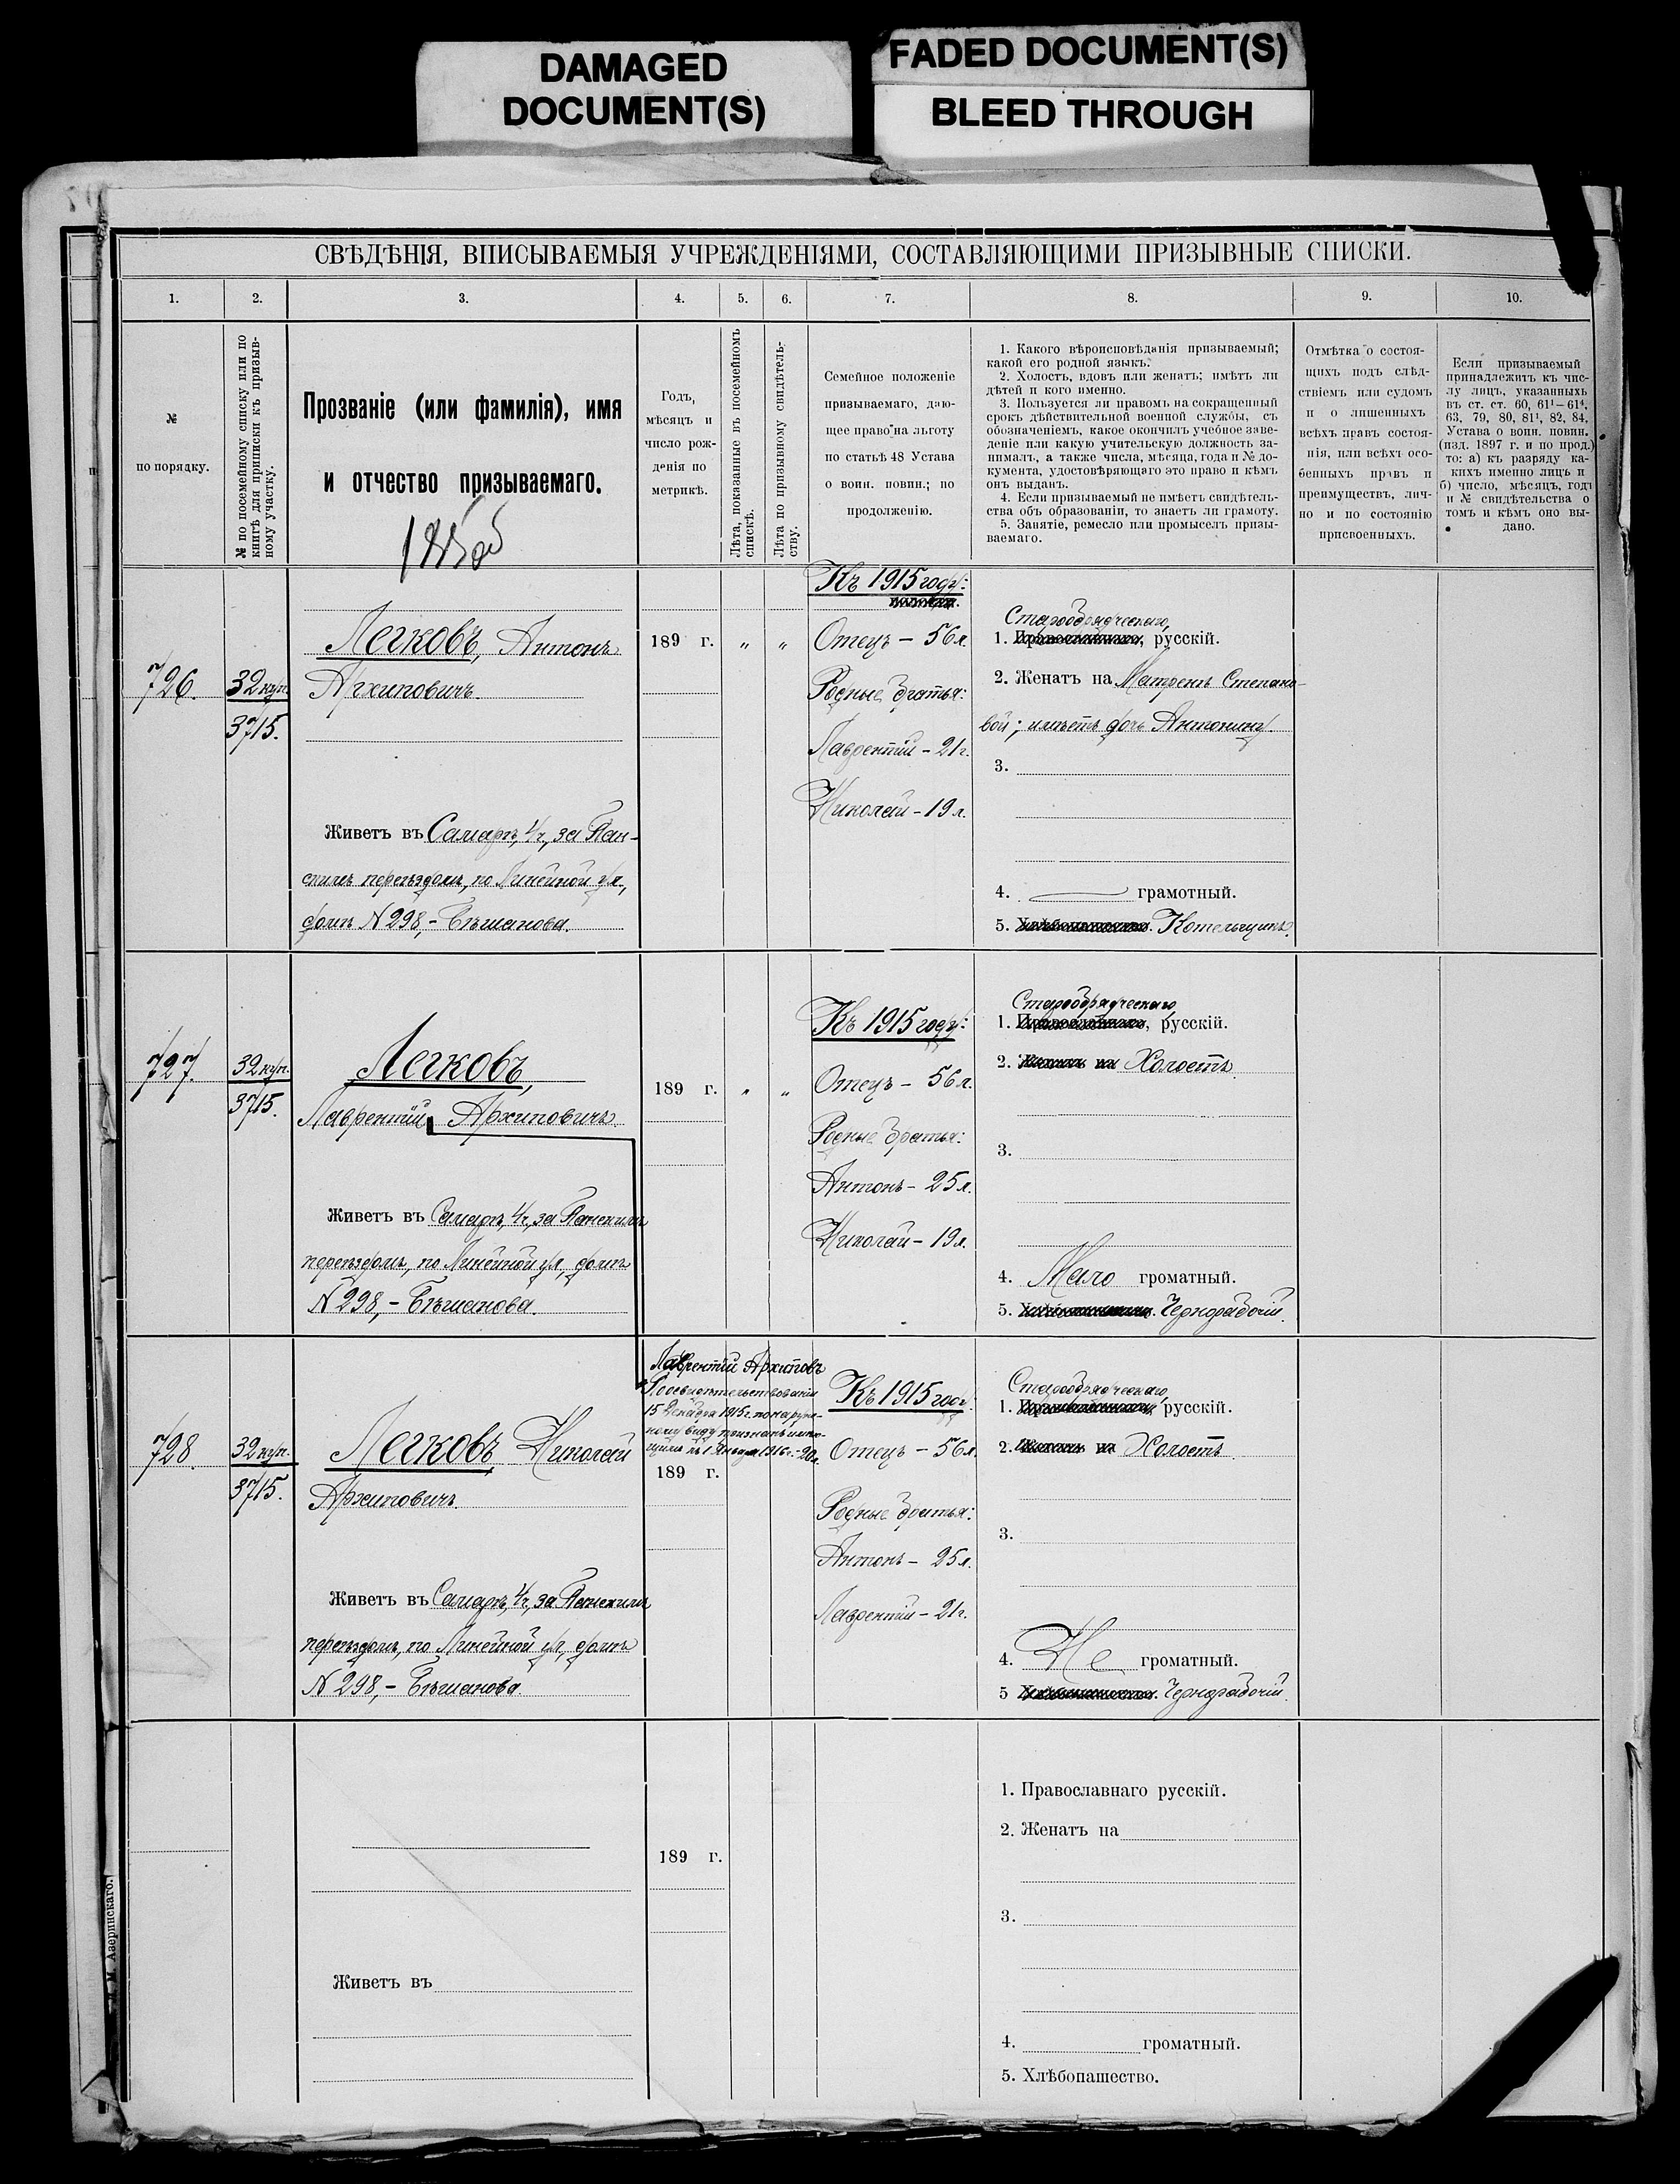 DAMAGED
DOCUMENT(S)
FADED DOCUMENT(S)
BLEED THROUGH
СВѢДѢНІЯ, ВПИСЫВАЕМЫЯ УЧРЕЖДЕНІЯМИ, СОСТАВЛЯЮЩИМИ ПРИЗЫВНЫЕ СПИСКИ.
1.
2.
3.
4.
5.
6.
7.
8.
9.
10.
№
по порядку.
№ по посемейному списку или по
книгѣ для приписки къ призыв-
ному участку.
Прозваніе (или фамилія), имя
и отчество призываемаго.
Годъ,
мѣсяцъ и
число рож-
денія по
метрикѣ.
Лѣта, показанные въ посемейномъ
спискѣ.
Лѣта по призывному свидѣтель-
ству.
Семейное положеніе
призываемаго, даю-
щее право на льготу
по статьѣ 48 Устава
о воин. повин.; по
продолженію.
1. Какого вѣроисповѣданія призываемый;
какой его родной языкъ.
2. Холостъ, вдовъ или женатъ; имѣтъ ли
дѣтей и кого именно.
3. Пользуется ли правомъ на сокращенный
срокъ дѣйствительной военной службы, съ
обозначеніемъ, какое окончилъ учебное заве-
деніе или какую учительскую должность за-
нималъ, а также числа, мѣсяца, года и № до-
кумента, удостовѣряющаго это право и кѣмъ
онъ выданъ.
4. Если призываемый не имѣетъ свидѣтель-
ства объ образованіи, то знаетъ ли грамоту.
5. Занятіе, ремесло или промыселъ призы-
ваемаго.
Отмѣтка о состоя-
щихъ подъ слѣд-
ствіемъ или судомъ
и о лишенныхъ
всѣхъ правъ состоя-
нія, или всѣхъ осо-
бенныхъ правъ и
преимуществъ, лич-
но и по состоянію
присвоенныхъ.
Если призываемый
принадлежитъ къ чис-
лу лицъ, указанныхъ
въ ст. ст. 60, 61¹—61⁴,
63, 79, 80, 81¹, 82, 84,
Устава о воин. повин.
(изд. 1897 г. и по прод.)
то: а) къ разряду ка-
кихъ именно лицъ и
б) число, мѣсяцъ, годъ
и № свидѣтельства о
томъ и кѣмъ оно вы-
дано.
726.
32 куп.
3715.
Легковъ, Антонъ
Архиповичъ.
Живетъ въ Самарѣ, 4 ч., за Пан-
скимъ переѣздомъ, по Линейной ул.,
домъ № 298, – Бѣшанова.
189 г.
„ „
Къ 1915 году:
Отецъ – 56 л.
Родные братья:
Лаврентій – 21 г.
Николай – 19 л.
Старообрядческаго,
1. Православнаго, русскій.
2. Женатъ на Матренѣ Степано-
вой; имѣетъ дочь Антонину.
3.
4. грамотный.
5. Хлѣбопашество. Котельщикъ.
727.
32 куп.
3715.
Легковъ,
Лаврентій Архиповичъ
Живетъ въ Самарѣ, 4 ч., за Панскимъ
переѣздомъ, по Линейной ул., домъ
№ 298, – Бѣшанова.
189 г.
„ „
Къ 1915 году:
Отецъ – 56 л.
Родные братья:
Антонъ – 25 л.
Николай – 19 л.
Старообрядческаго,
1. Православнаго, русскій.
2. Женатъ на Холостъ
3.
4. Мало громатный.
5. Хлѣбопашество. Чернорабочій.
728.
32 куп.
3715.
Легковъ Николай
Архиповичъ.
Живетъ въ Самарѣ, 4 ч., за Панскимъ
переѣздомъ, по Линейной ул., домъ
№ 298, – Бѣшанова.
Лаврентій Архиповъ
15 Декабря 1915 г. по наруж-
ному виду признанъ имѣю-
щимъ къ 1 Января 1916 г. – 20 л.
189 г.
Къ 1915 году:
Отецъ – 56 л.
Родные братья:
Антонъ – 25 л.
Лаврентій – 21 г.
Старообрядческаго,
1. Православнаго, русскій.
2. Женатъ на Холостъ
3.
4. Не громатный.
5 Хлѣбопашество. Чернорабочій.
Живетъ въ
189 г.
1. Православнаго русскій.
2. Женатъ на
3.
4. громатный.
5. Хлѣбопашество.
М. Азеринскаго.